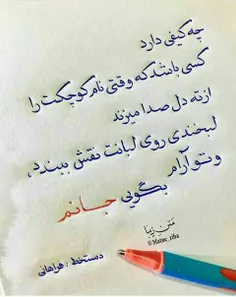 چه کیفی دارد
کسی باشد که وقتی نام کوچکت را
از ته دل صدا میزند
لبخندی روی لبانت نقش ببندد،
و تو آرام
بگویی جانم
متن زیبا
@Matne_ziba
دستخط : فراهانی